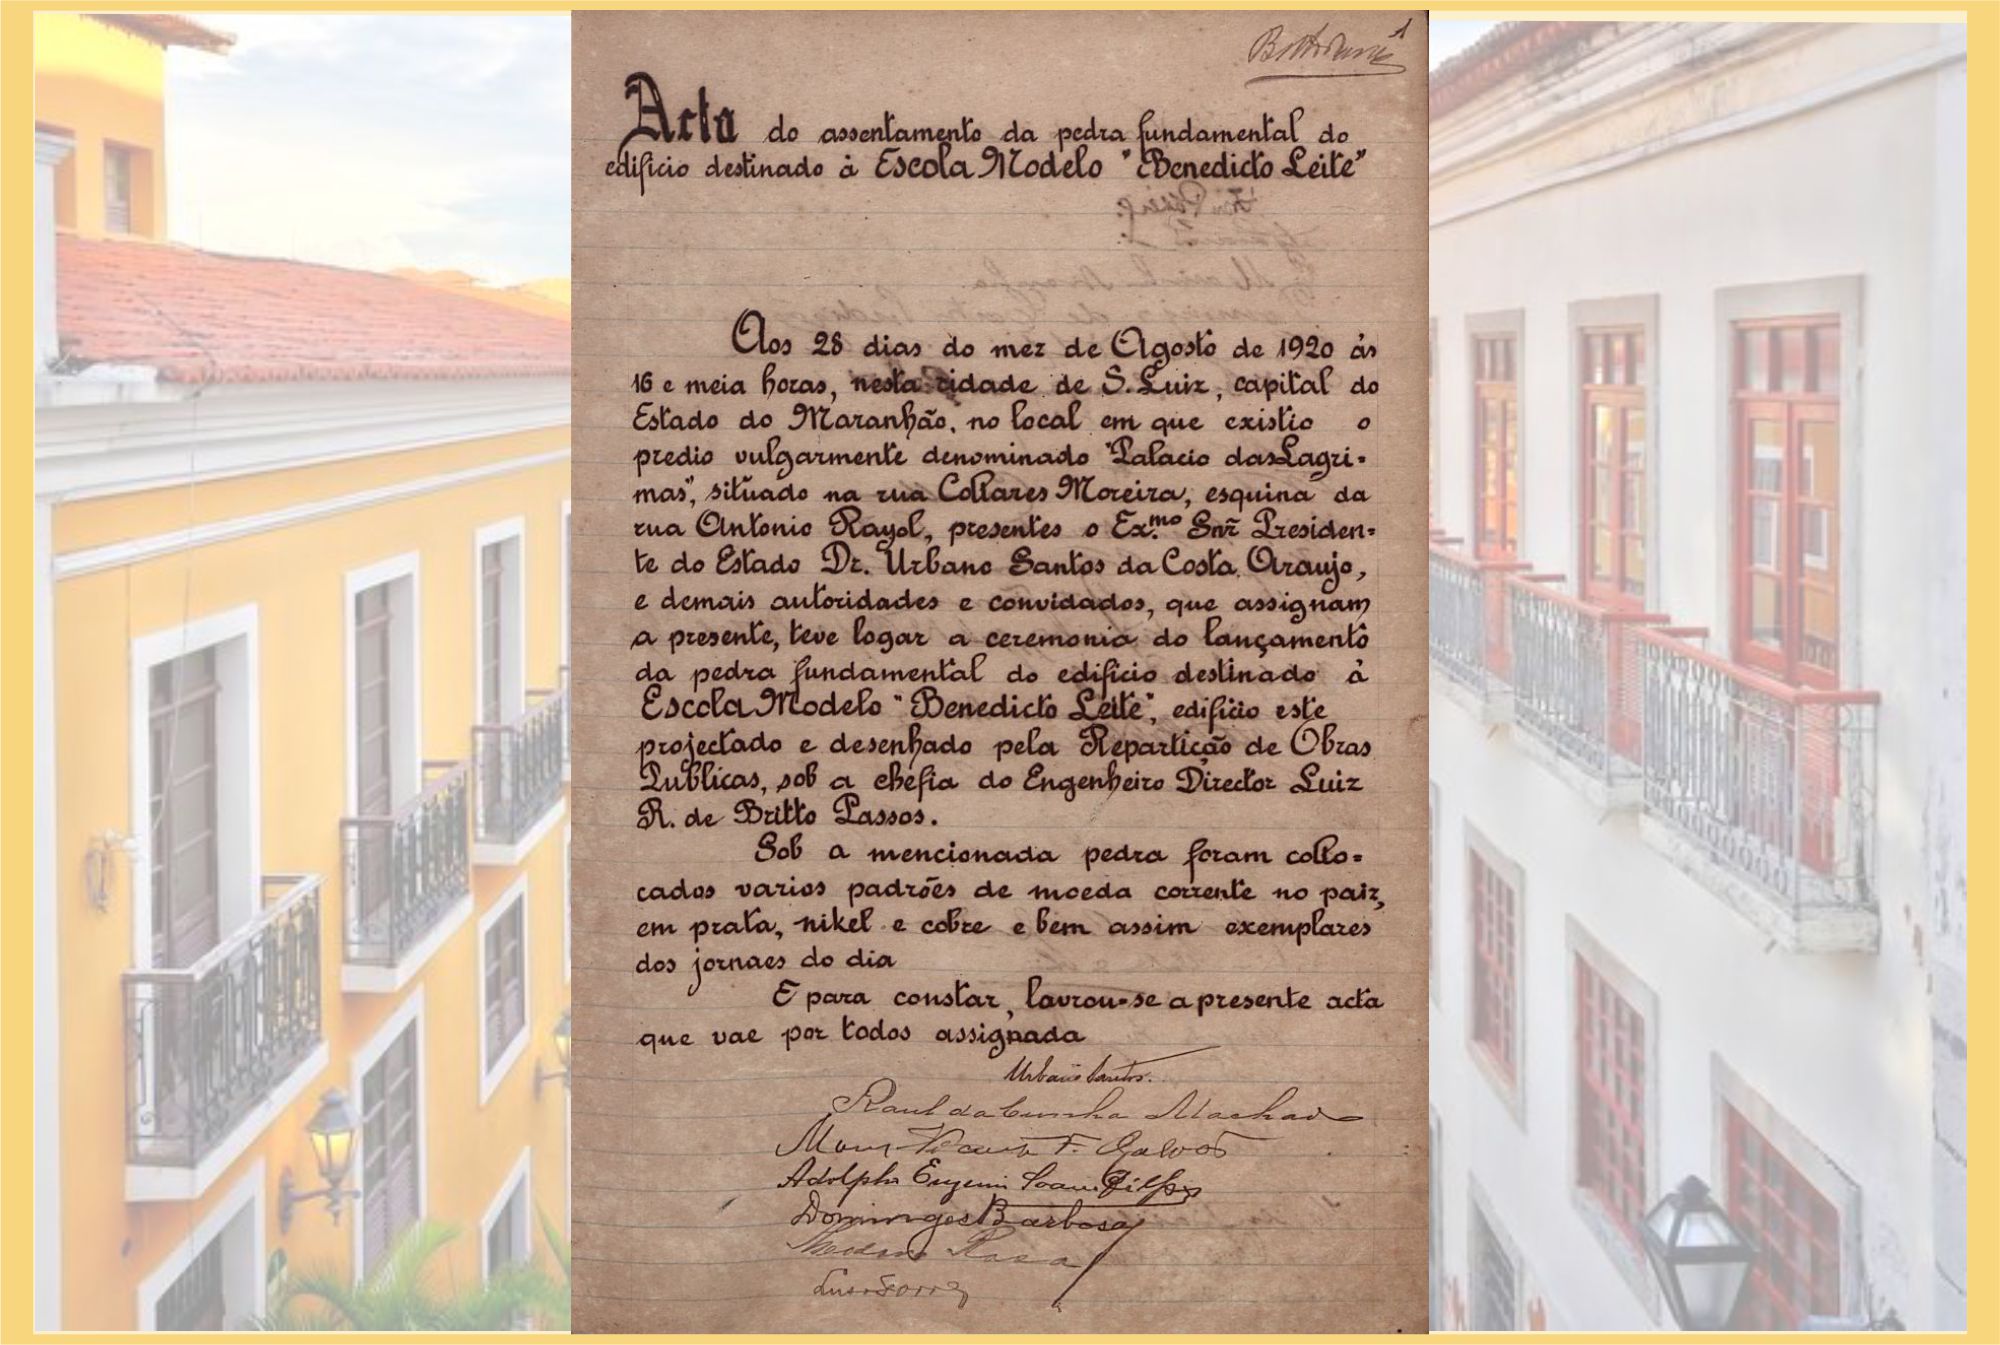 1
Acta do assentamento da pedra fundamental do
edificio destinado á Escola Modelo "Benedicto Leite"
Aos 28 dias do mez de Agosto de 1920 ás
16 e meia horas, nesta cidade de S. Luiz, capital do
Estado do Maranhão, no local em que existio o
predio vulgarmente denominado "Palacio das Lagri=
mas", situado na rua Collares Moreira, esquina da
rua Antonio Rayol, presentes o Ex.mo Snr̃ Presiden=
te do Estado Dr. Urbano Santos da Costa Araujo,
e demais autoridades e convidados, que assignam
a presente, teve logar a ceremonia do lançamento
da pedra fundamental do edificio destinado á
Escola Modelo "Benedicto Leite", edificio este
projectado e desenhado pela Repartição de Obras
Publicas, sob a chefia do Engenheiro Director Luiz
R. de Britto Passos.
Sob a mencionada pedra foram collo=
cados varios padrões de moeda corrente no paiz,
em prata, nikel e cobre e bem assim exemplares
dos jornaes do dia
E para constar, lavrou-se a presente acta
que vae por todos assignada
Urbano Santos.
Raul da Cunha Machado
F. Galvão
Adolpho Eugenio Soares Filho
Domingos Barbosa